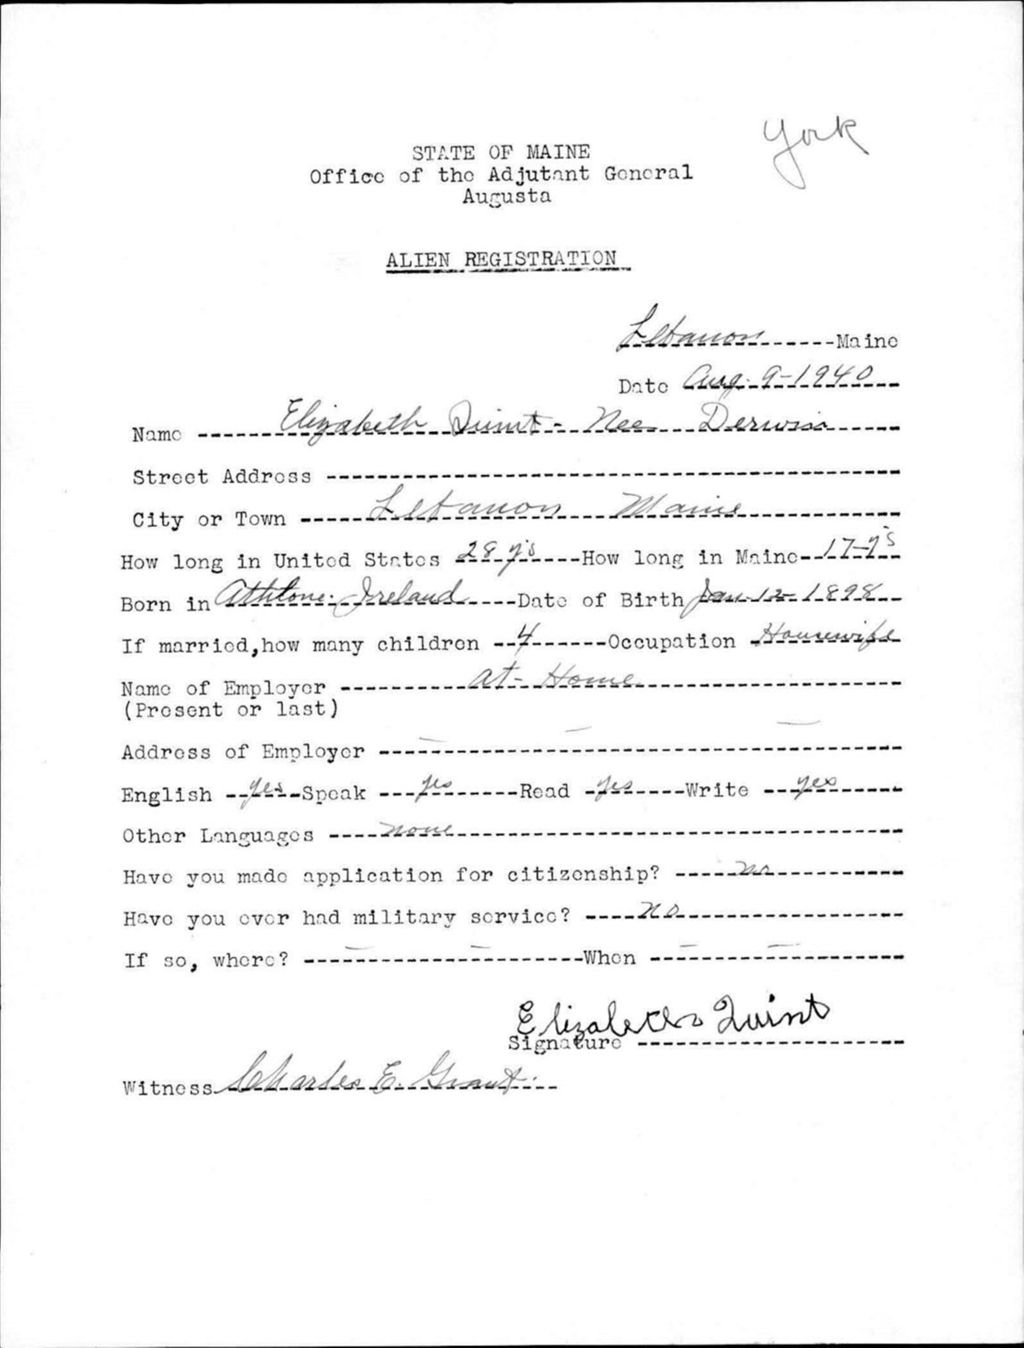 York
STATE OF MAINE
Office of the Adjutant General
Augusta
ALIEN REGISTRATION
Lebanon Maine
Date Aug. 9-1940
Name Elizabeth Quint - Nee Derwin
Street Address
City or Town Lebanon Maine
How long in United States 28 y's How long in Maine 17-y's
Born in Athlone. Ireland Date of Birth Jan. 12-1898
If married, how many children 4 Occupation Housewife
Name of Employer at-Home
(Present or last)
Address of Employer
English yes Speak yes Read yes Write yes
Other Languages none
Have you made application for citizenship? no
Have you ever had military service? no
If so, where? When
Elizabeth Quint
Signature
Witness Charles E. Grant.